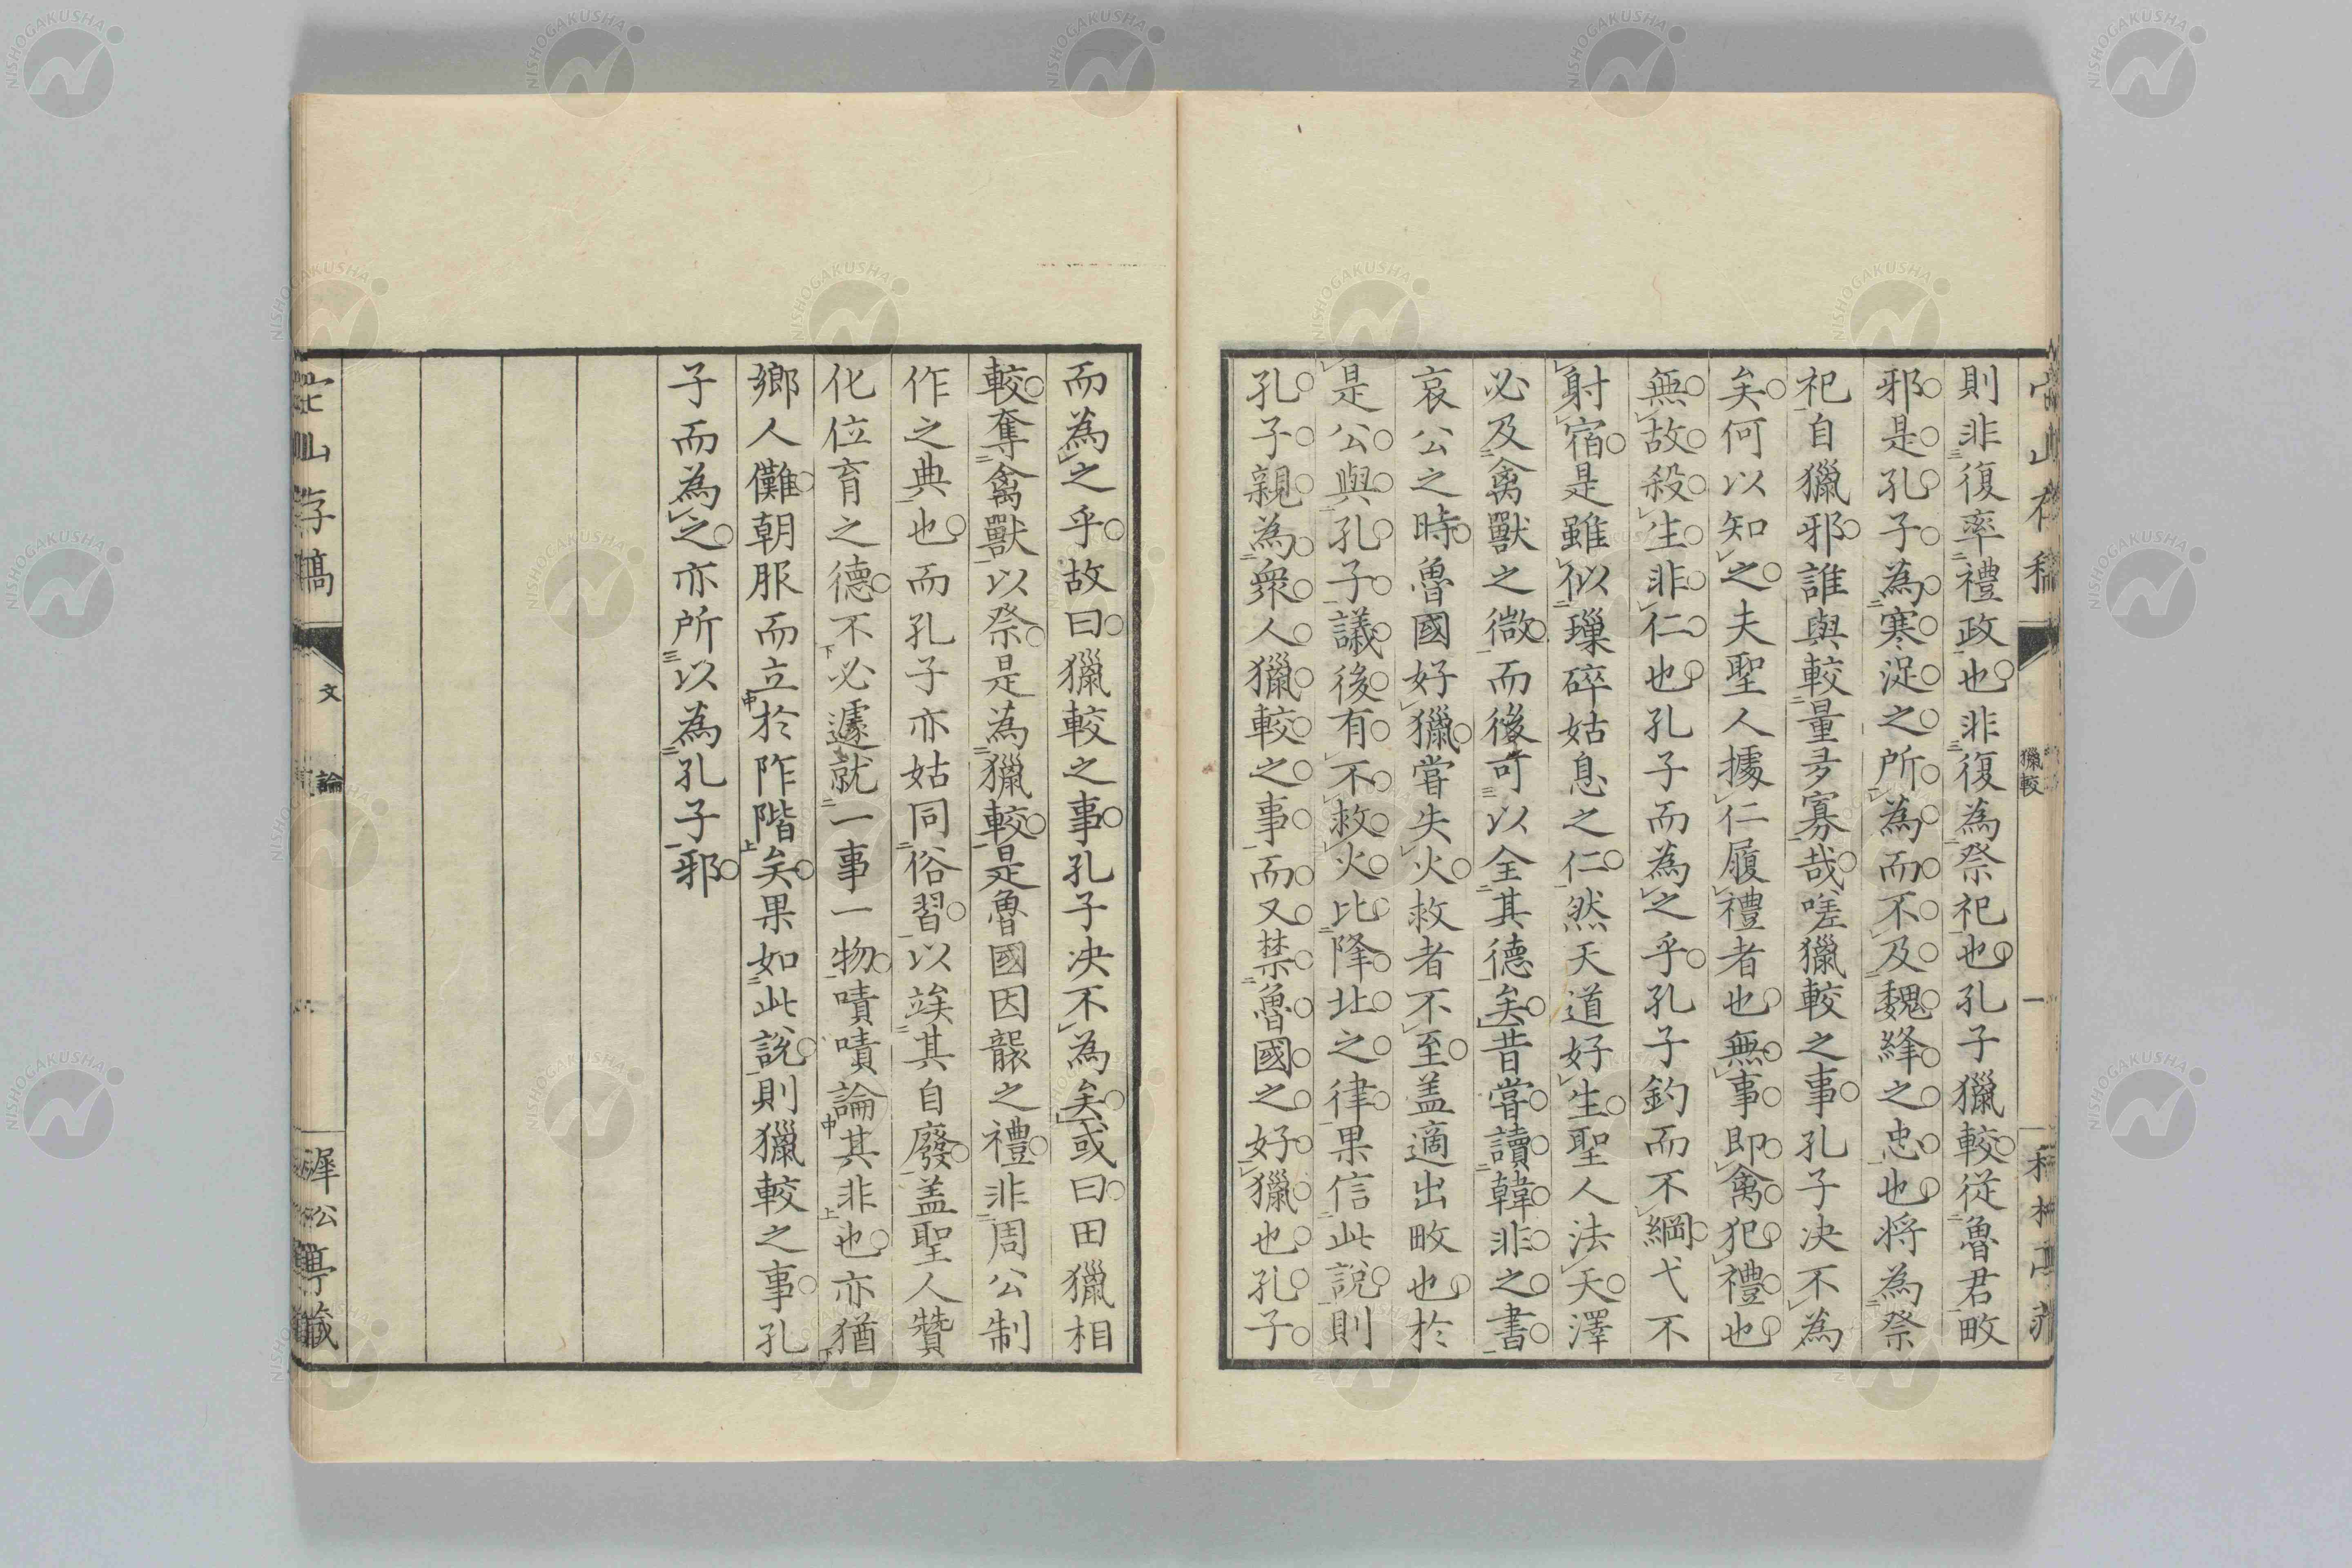 則非復率禮政也非復為祭祀也孔子獵較從魯君畋
邪是孔子為寒浞之所為而不及魏絳之忠也将為祭
祀自獵邪誰與較量多寡哉嗟獵較之事孔子决不為
矣何以知之夫聖人據仁履禮者也無事即禽犯禮也
無故殺生非仁也孔子而為之乎孔子釣而不綱弋不
射宿是雖似璅碎姑息之仁然天道好生聖人法天澤
必及禽獸之微而後可以全其德矣昔嘗讀韓非之書
哀公之時魯國好獵嘗失火救者不至盖適出畋也於
是公與孔子議後有不救火比降北之律果信此說則
孔子親為衆人獵較之事而又禁魯國之好獵也孔子
而為之乎故曰獵較之事孔子决不為矣或曰田獵相
較奪禽獸以祭是為獵較是魯國因襲之禮非周公制
作之典也而孔子亦姑同俗習以竢其自廢盖聖人贊
化位育之德不必遽就一事一物嘖嘖論其非也亦猶
鄉人儺朝服而立於阼階矣果如此說則獵較之事孔
子而為之亦所以為孔子邪
文
論
獵較
一
NISHOGAKUSHA